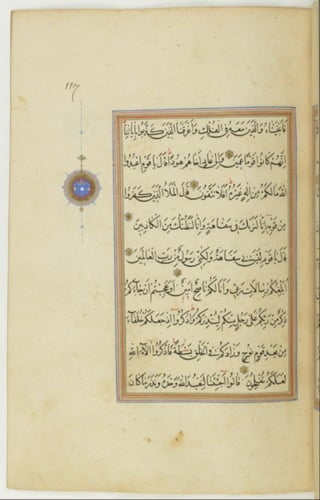 فَأَنْجَيْنَاهُ وَالَّذِينَ مَعَهُ فِي الْفُلْكِ وَأَغْرَقْنَا الَّذِينَ كَذَّبُوا بِآيَاتِنَا
إِنَّهُمْ كَانُوا قَوْمًا عَمِينَ وَإِلَى عَادٍ أَخَاهُمْ هُودًا قَالَ يَا قَوْمِ اعْبُدُوا
اللَّهَ مَا لَكُمْ مِنْ إِلَهٍ غَيْرُهُ أَفَلَا تَتَّقُونَ قَالَ الْمَلَأُ الَّذِينَ كَفَرُوا
مِنْ قَوْمِهِ إِنَّا لَنَرَاكَ فِي سَفَاهَةٍ وَإِنَّا لَنَظُنُّكَ مِنَ الْكَاذِبِينَ
قَالَ يَا قَوْمِ لَيْسَ بِي سَفَاهَةٌ وَلَكِنِّي رَسُولٌ مِنْ رَبِّ الْعَالَمِينَ
أُبَلِّغُكُمْ رِسَالَاتِ رَبِّي وَأَنَا لَكُمْ نَاصِحٌ أَمِينٌ أَوَعَجِبْتُمْ أَنْ جَاءَكُمْ
ذِكْرٌ مِنْ رَبِّكُمْ عَلَى رَجُلٍ مِنْكُمْ لِيُنْذِرَكُمْ وَاذْكُرُوا إِذْ جَعَلَكُمْ خُلَفَاءَ
مِنْ بَعْدِ قَوْمِ نُوحٍ وَزَادَكُمْ فِي الْخَلْقِ بَسْطَةً فَاذْكُرُوا آلَاءَ اللَّهِ
لَعَلَّكُمْ تُفْلِحُونَ قَالُوا أَجِئْتَنَا لِنَعْبُدَ اللَّهَ وَحْدَهُ وَنَذَرَ مَا كَانَ